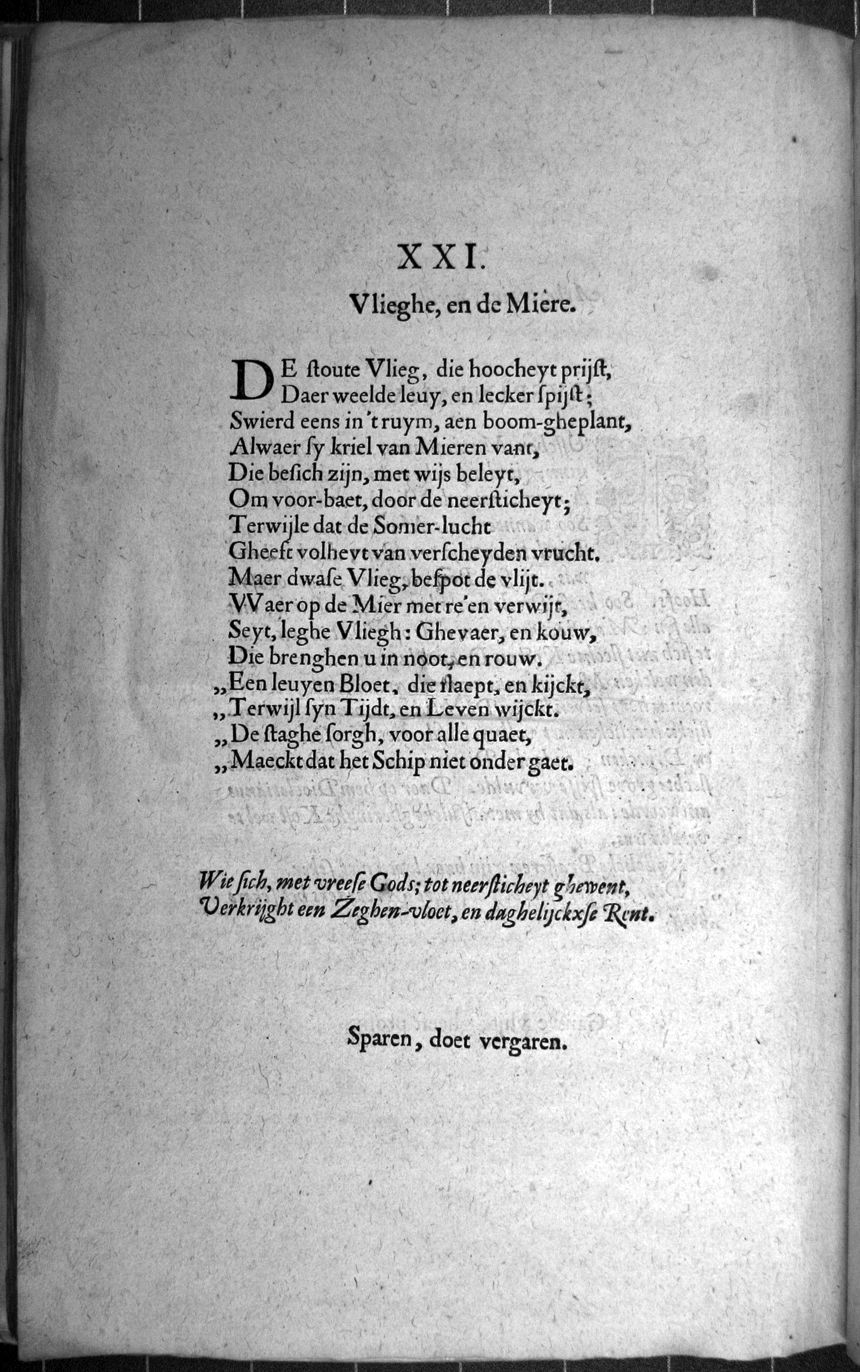 XXI.
Vlieghe, en de Miere.
DE ſtoute Vlieg, die hoocheyt prijſt,
Daer weelde leuy, en lecker ſpijſt;
Swierd eens in 't ruym, aen boom-gheplant,
Alwaer ſy kriel van Mieren vant,
Die beſich zijn, met wijs beleyt,
Om voor-baet, door de neerſticheyt;
Terwijle dat de Somer-lucht
Gheeft volheyt van verſcheyden vrucht.
Maer dwaſe Vlieg, beſpot de vlijt.
VVaer op de Mier met re'en verwijt,
Seyt, leghe Vliegh: Ghevaer, en kouw,
Die brenghen u in noot, en rouw.
„Een leuyen Bloet, die ſlaept, en kijckt,
„Terwijl ſyn Tijdt, en Leven wijckt.
„De ſtaghe ſorgh, voor alle quaet,
„Maeckt dat het Schip niet onder gaet.
Wie ſich, met vreeſe Gods; tot neerſticheyt ghewent,
Verkrijght een Zeghen-vloet, en daghelijckxſe Rent.
Sparen, doet vergaren.